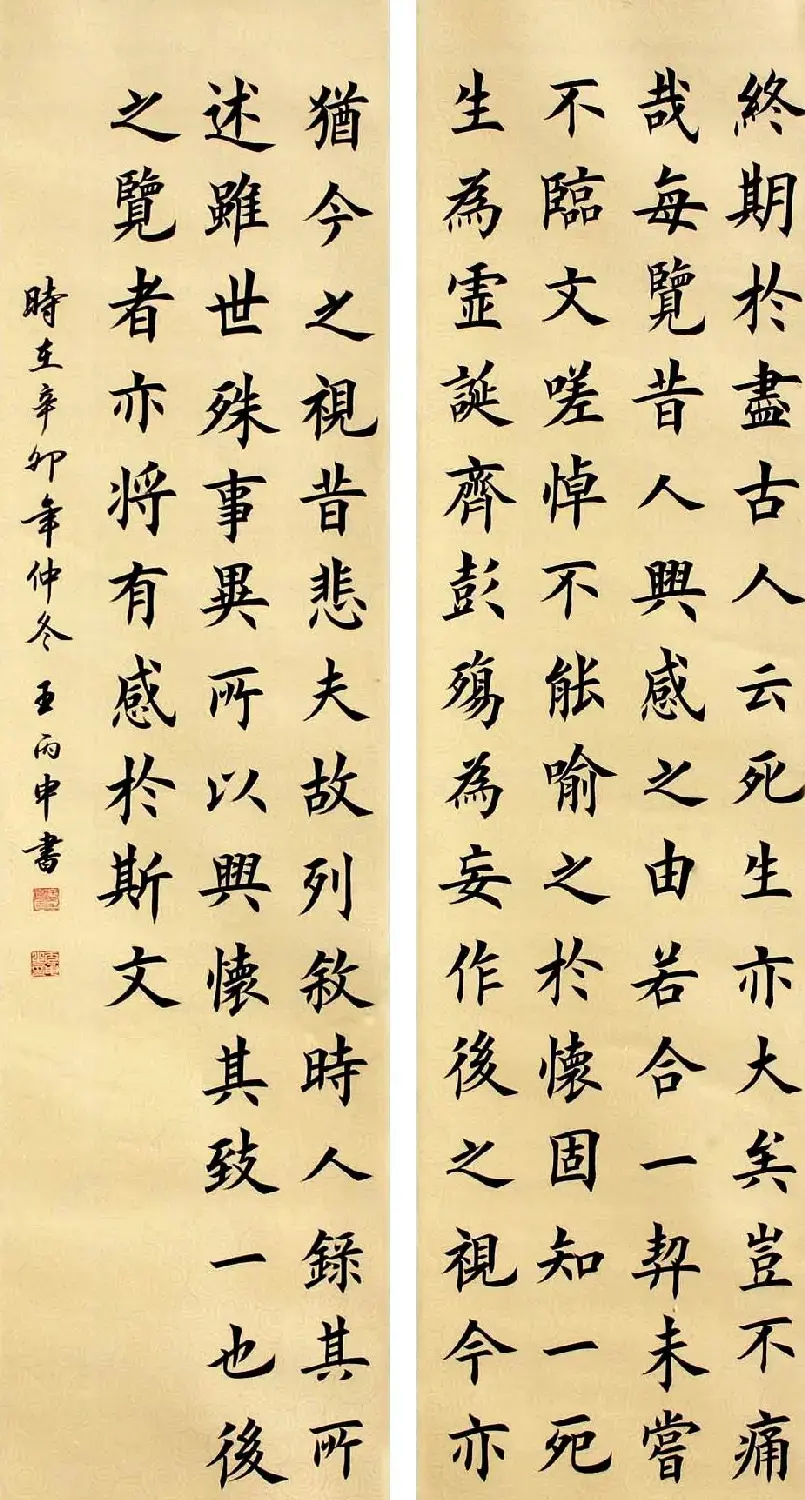 終期於盡古人云死生亦大矣豈不痛
哉每覽昔人興感之由若合一契未嘗
不臨文嗟悼不能喻之於懷固知一死
生為虛誕齊彭殤為妄作後之視今亦
猶今之視昔悲夫故列敘時人錄其所
述雖世殊事異所以興懷其致一也後
之覽者亦將有感於斯文
時在辛卯年仲冬王丙申書